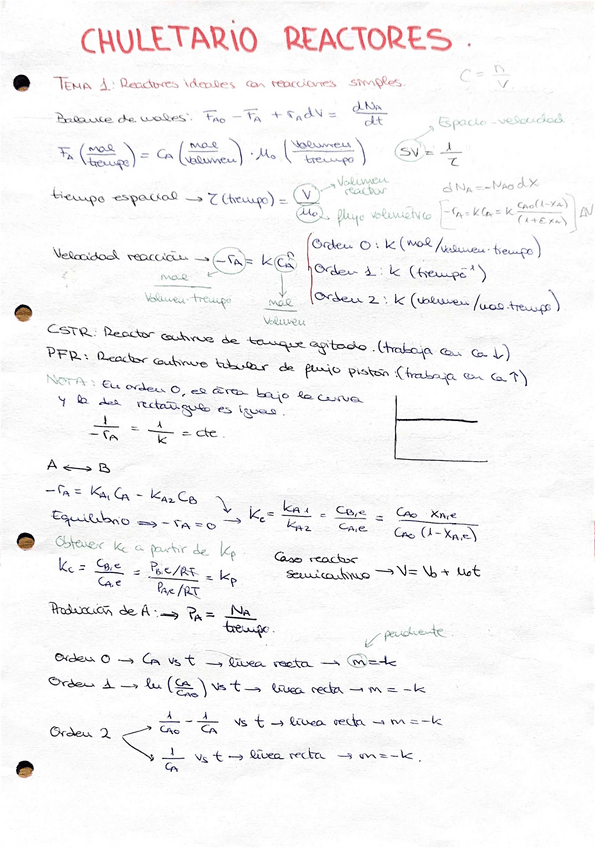 CHULETARIO REACTORES.
TEMA 1: Reactores ideales con reacciones simples.
C = n/V
Balance de moles: FA0 − FA + rA dV = dNA/dt
Espacio-velocidad
FA (mol/tiempo) = CA (mol/volumen) · μ0 (volumen/tiempo)
SV = 1/τ
tiempo espacial → τ (tiempo) = V/μ0
Volumen reactor
flujo volumétrico
dNA = −NA0 dX
[−rA = k CA = k CA0(1−XA)/(1+εXA)] ΔV
Velocidad reacción → −rA = k CA^n
mol/Volumen·tiempo
mol/Volumen
Orden 0: k (mol/volumen·tiempo)
Orden 1: k (tiempo⁻¹)
Orden 2: k (volumen/mol·tiempo)
CSTR: Reactor continuo de tanque agitado. (trabaja con CA ↓)
PFR: Reactor continuo tubular de flujo pistón. (trabaja con CA ↑)
NOTA: En orden 0, el área bajo la curva
y la del rectángulo es igual.
1/−rA = 1/k = cte.
A ⟷ B
−rA = KA1 CA − KA2 CB
Equilibrio ⇒ −rA = 0 → Kc = kA1/kA2 = CB,e/CA,e = CA0 XA,e/CA0 (1−XA,e)
Obtener Kc a partir de Kp.
Kc = CB,e/CA,e = PB,e/RT/PA,e/RT = Kp
Caso reactor
semicontinuo → V = V0 + μ0t
Producción de A: → PA = NA/tiempo.
pendiente.
Orden 0 → CA vs t → línea recta → m = −k
Orden 1 → ln (CA/CA0) vs t → línea recta → m = −k
Orden 2
1/CA0 − 1/CA vs t → línea recta → m = −k
1/CA vs t → línea recta → m = −k.